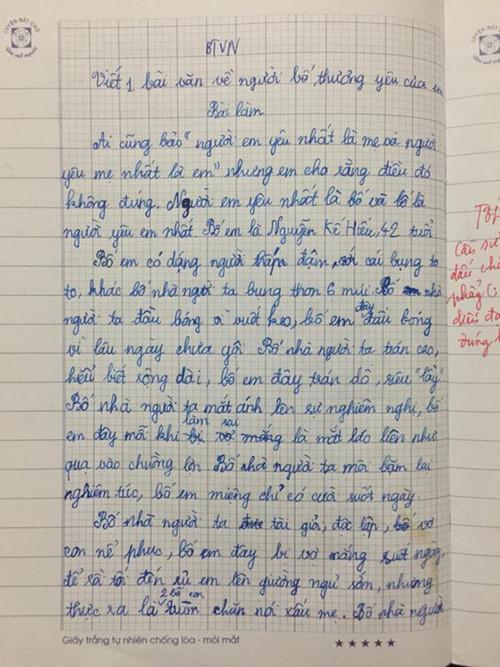 LUYỆN NÉT CHỮ
BTVN
Viết 1 bài văn về người bố thương yêu của em
Bài làm
Ai cũng bảo "người em yêu nhất là mẹ và người
yêu mẹ nhất là em" nhưng em cho rằng điều đó
không đúng. Người em yêu nhất là bố và bố là
người yêu em nhất. Bố em là Nguyễn Kế Hiếu, 42 tuổi
Bố em có dạng người đậm, với cái bụng to
to, khác bố nhà người ta bụng thon 6 múi. Bố nhà
người ta đầu bóng vì vuốt keo, bố em đây đầu bóng
vì lâu ngày chưa gội Bố nhà người ta trán cao,
hiểu biết rộng dài, bố em đây trán dô, siêu "lầy"
Bố nhà người ta mắt ánh lên sự nghiêm nghị, bố
em đây mỗi khi làm sai là mắt láo liên như
quạ vào chuồng lợn Bố nhà người ta môi bặm lại
nghiêm túc, bố em miệng chỉ có cười suốt ngày.
Bố nhà người ta tài giỏi, độc lập, vợ
con nể phục, bố em đây bị vợ mắng suốt ngày
để rồi tối đến rủ em lên giường ngủ sớm, nhưng
thực ra là 2 bố con trùm chăn nói xấu mẹ. Bố nhà người
Giấy trắng tự nhiên chống lóa - mỏi mắt
Câu
dấu
điều
đúng